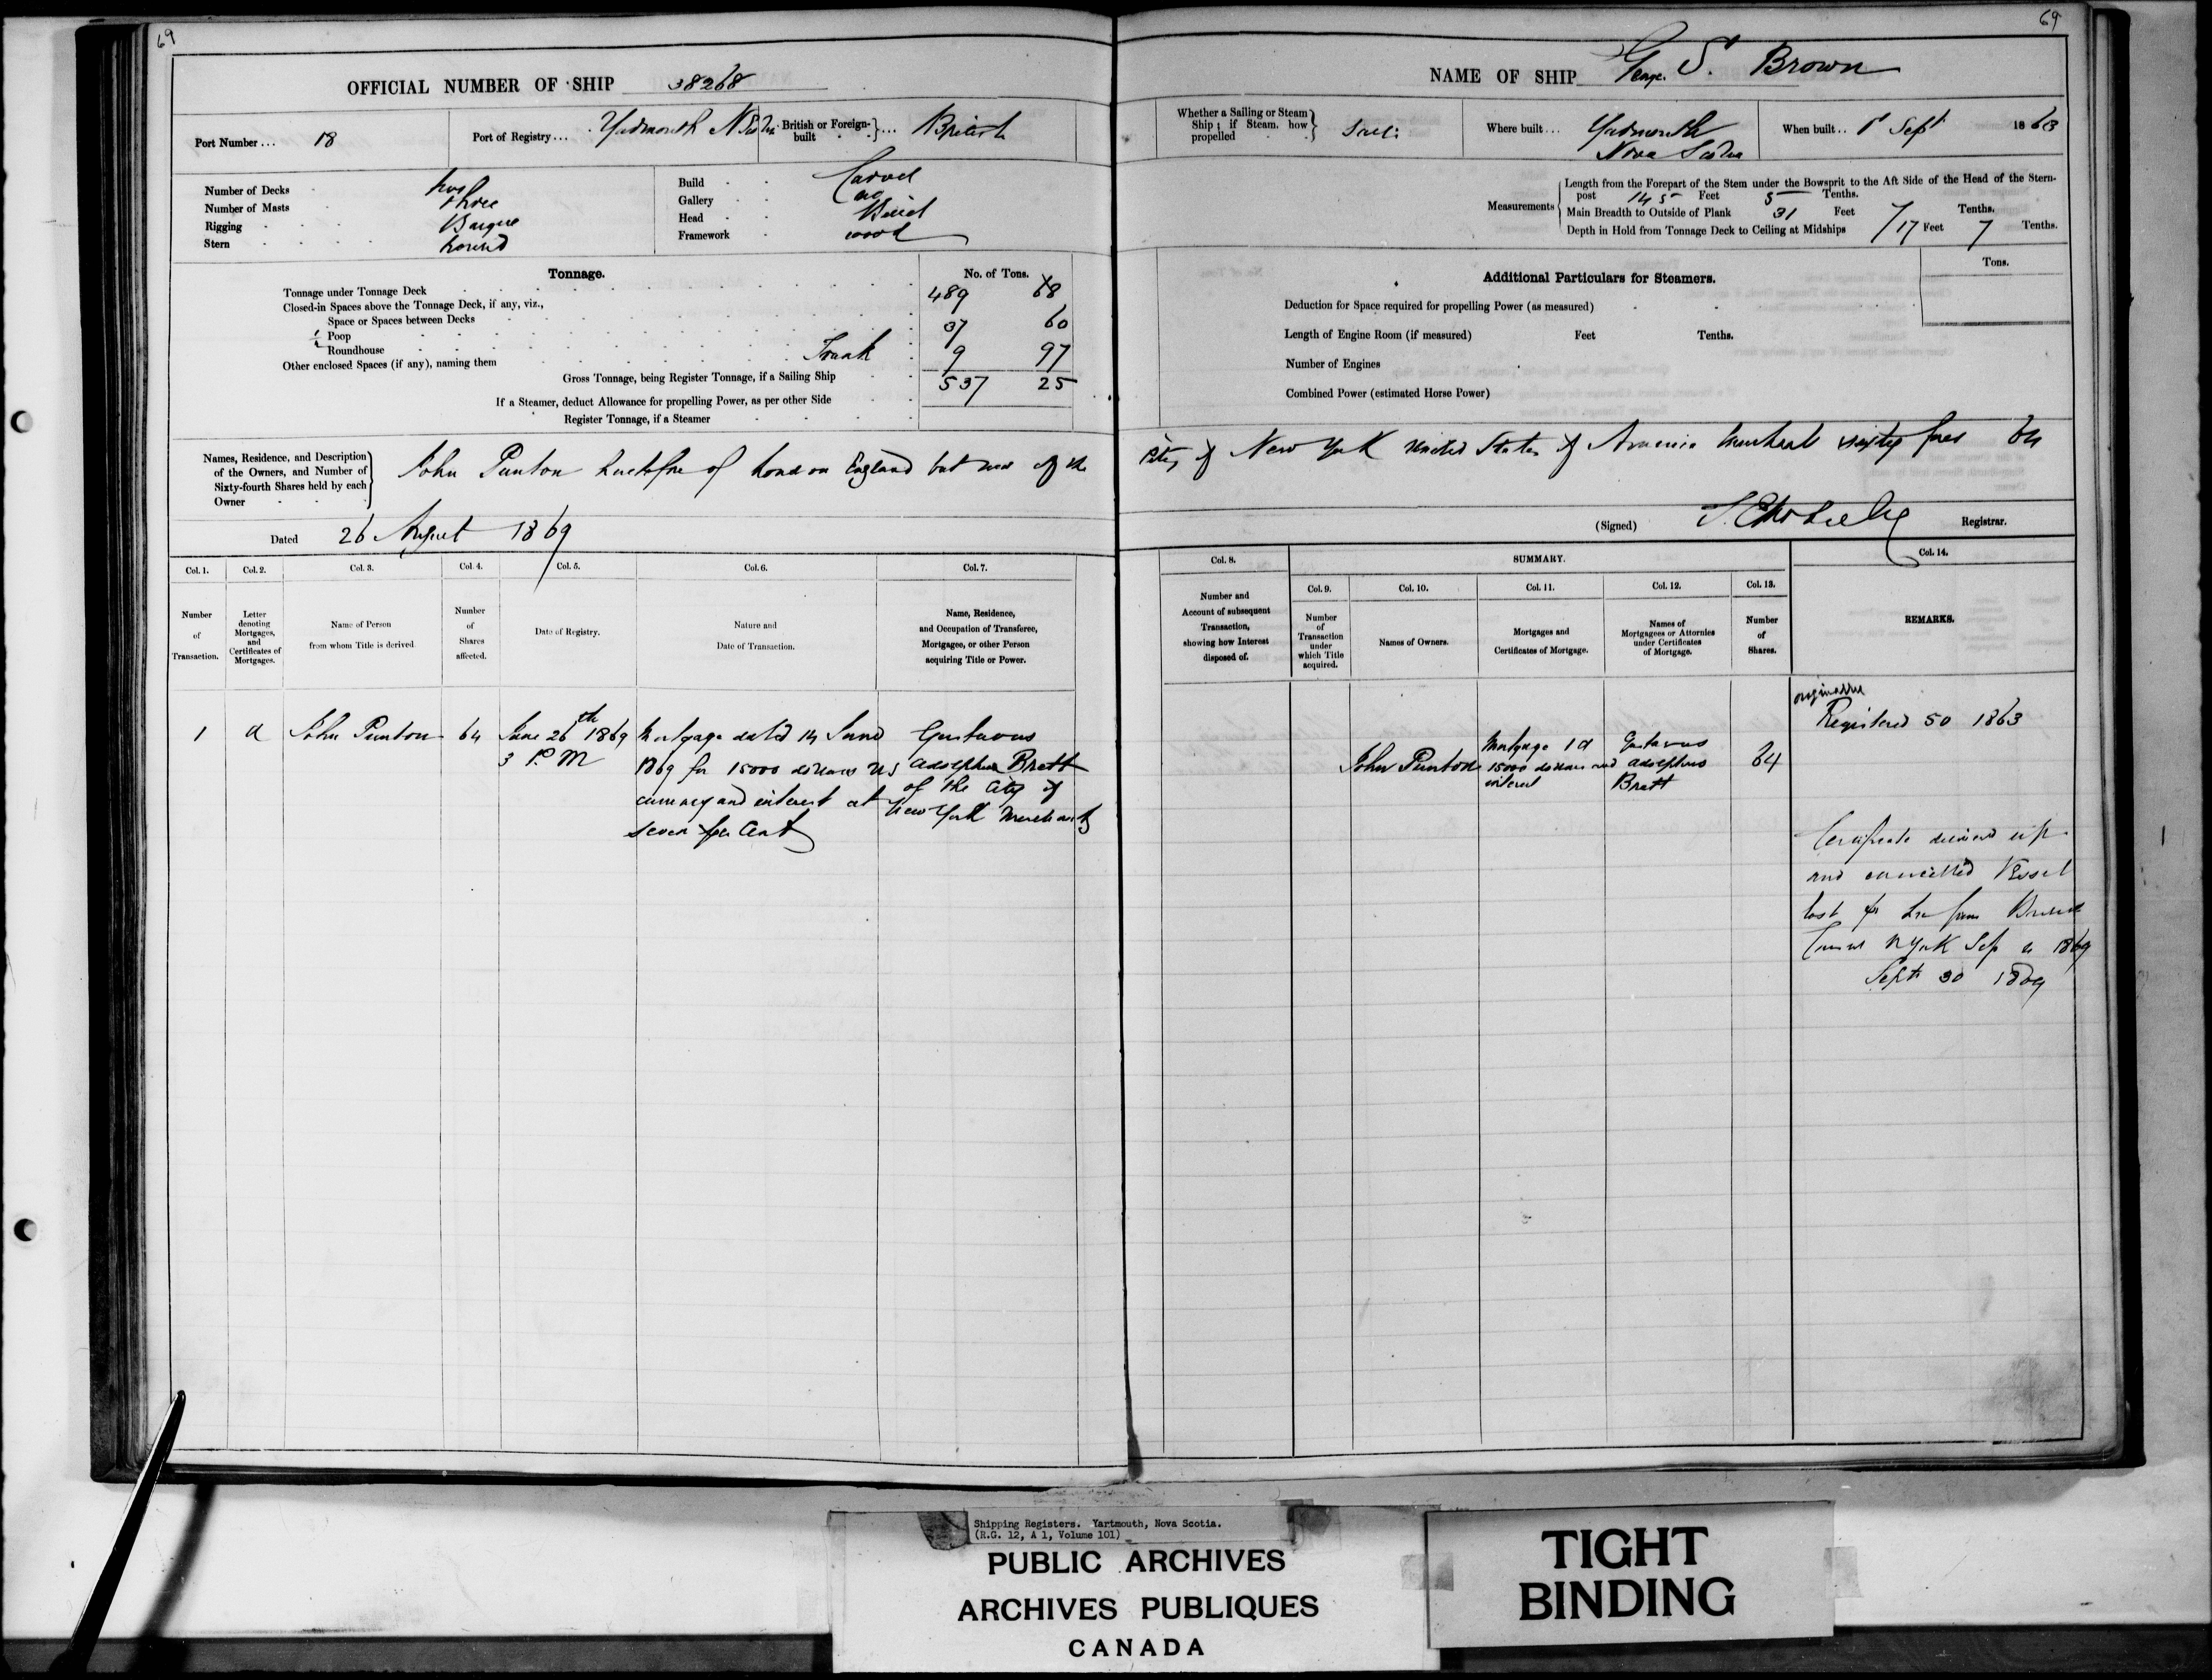 69
OFFICIAL NUMBER OF SHIP 38268
Port Number ... 18
Port of Registry ... Yarmouth N Scotia
British or Foreign-built ... British
Number of Decks two
Number of Masts three
Rigging Barque
Stern round
Build Carvel
Gallery no
Head
Framework wood
Tonnage. No. of Tons.
Tonnage under Tonnage Deck 489 68
Closed-in Spaces above the Tonnage Deck, if any, viz.,
Space or Spaces between Decks
Poop 37 60
Roundhouse
Other enclosed Spaces (if any), naming them Trunk 9 97
Gross Tonnage, being Register Tonnage, if a Sailing Ship 537 25
If a Steamer, deduct Allowance for propelling Power, as per other Side
Register Tonnage, if a Steamer
Names, Residence, and Description of the Owners, and Number of Sixty-fourth Shares held by each Owner
John Punton of London England but now of the
Dated 26 August 1869
Col. 1. Col. 2. Col. 3. Col. 4. Col. 5. Col. 6. Col. 7.
Number of Transaction.
Letter denoting Mortgages, and Certificates of Mortgages.
Name of Person from whom Title is derived.
Number of Shares affected.
Date of Registry.
Nature and Date of Transaction.
Name, Residence, and Occupation of Transferee, Mortgagee, or other Person acquiring Title or Power.
1 a John Punton 64
June 26th 1869
3 P.M
Mortgage dated 14 June
1869 for 15000 dollars US
currency and interest at
seven per Cent
Gustavus
Adolphus Brett
of the City of
New York Merchant
69
NAME OF SHIP George S. Brown
Whether a Sailing or Steam Ship; if Steam, how propelled
Where built ... Yarmouth
Nova Scotia
When built .. 1st Sept 1863
Measurements
Length from the Forepart of the Stem under the Bowsprit to the Aft Side of the Head of the Stern-
post 145 Feet 5 Tenths.
Main Breadth to Outside of Plank 31 Feet 7 Tenths.
Depth in Hold from Tonnage Deck to Ceiling at Midships 17 Feet 7 Tenths.
Additional Particulars for Steamers. Tons.
Deduction for Space required for propelling Power (as measured)
Length of Engine Room (if measured) Feet Tenths.
Number of Engines
Combined Power (estimated Horse Power)
City of New York United States of America Merchant sixty four 64
(Signed) Registrar.
Col. 8. SUMMARY. Col. 14.
Col. 9. Col. 10. Col. 11. Col. 12. Col. 13.
Number and Account of subsequent Transaction, showing how Interest disposed of.
Number of Transaction under which Title acquired.
Names of Owners.
Mortgages and Certificates of Mortgage.
Names of Mortgagees or Attornies under Certificates of Mortgage.
Number of Shares.
REMARKS.
John Punton
Mortgage 1 a
15000 dollars and
interest
Gustavus
Adolphus
Brett
64
Registered 50 1863
Certificate delivered up
and cancelled Vessel
lost
N York Sep 1869
Sept 30 1869
Shipping Registers. Yartmouth, Nova Scotia.
(R.G. 12, A 1, Volume 101)
PUBLIC ARCHIVES
ARCHIVES PUBLIQUES
CANADA
TIGHT
BINDING